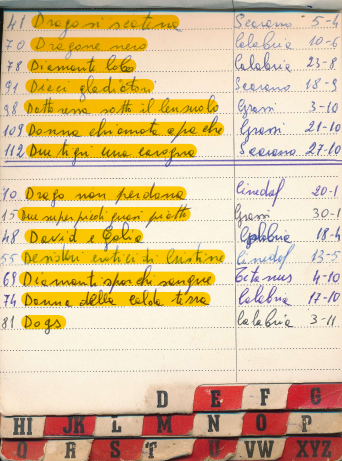 41 Drago si scatena Scarano 5-4
70 Dragone nero Calabria 10-6
78 Diamante lobo Calabria 23-8
91 Dieci gladiatori Scarano 18-9
98 sotto il lenzuolo Grassi 3-10
109 Donna chiamata apache Grassi 21-10
112 Due tigri una carogna Scarano 27-10
10 Drago non perdona Cinedaf 20-1
15 Due superpiedi quasi piatti Grassi 30-1
48 David e Golia Calabria 18-4
55 Desideri erotici di Cristine Cinedaf 13-5
69 Diamanti sporchi sangue Titanus 4-10
74 Donna della calda terra Calabria 17-10
81 Dogs Calabria 3-11
D E F G
HI JK L M N O P
Q R S T U VW XYZ